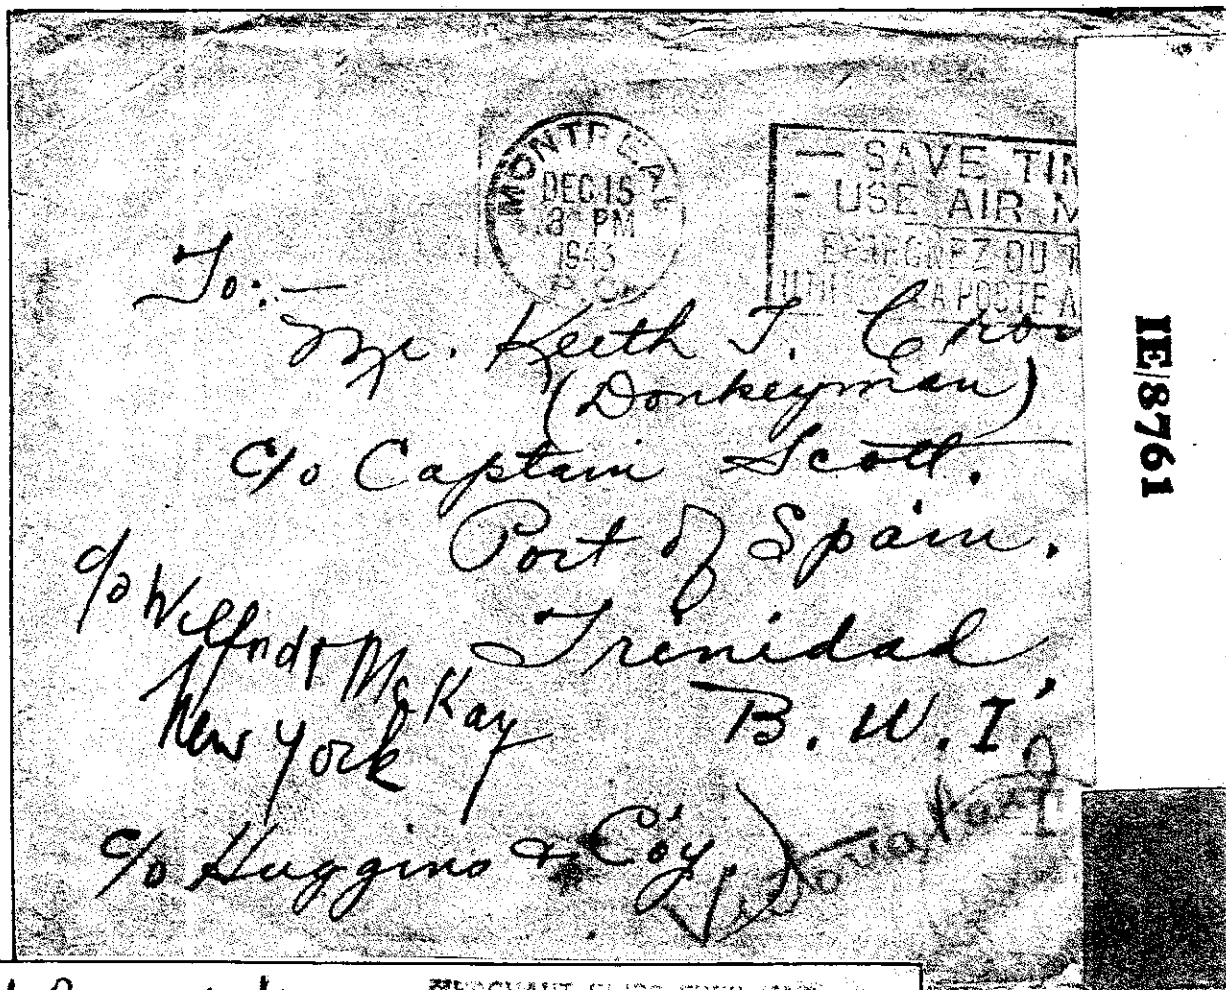 MONTREAL
DEC 15
8 PM
1943
— SAVE TIM
- USE AIR M
EPARGNEZ DU T
A POSTE A
To:—
Mr. Keith T. Crow
(Donkeyman)
c/o Captain Scott.
Port of Spain.
Trinidad
B.W.I.
c/o Wilfrid McKay
New York
c/o Huggins & Co'y.
IE/8761